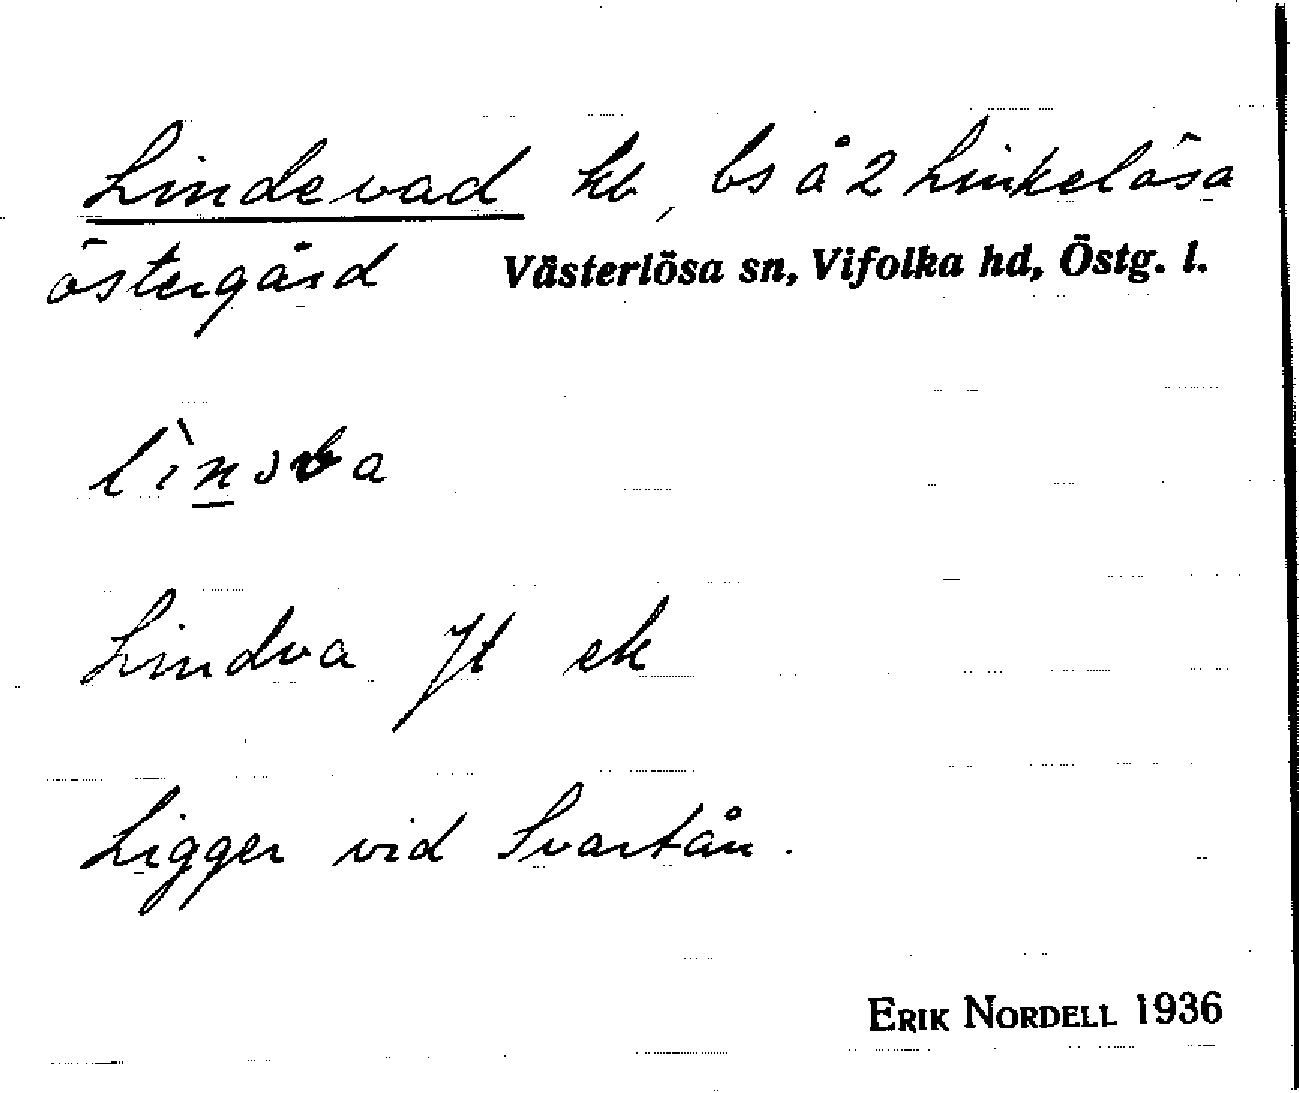 Lindevad hb, bs å 2 Linkelösa
östergård Västerlösa sn, Vifolka hd, Östg. l.
Lindva Jt ek
Ligger vid Svartån.
ERIK NORDELL 1936